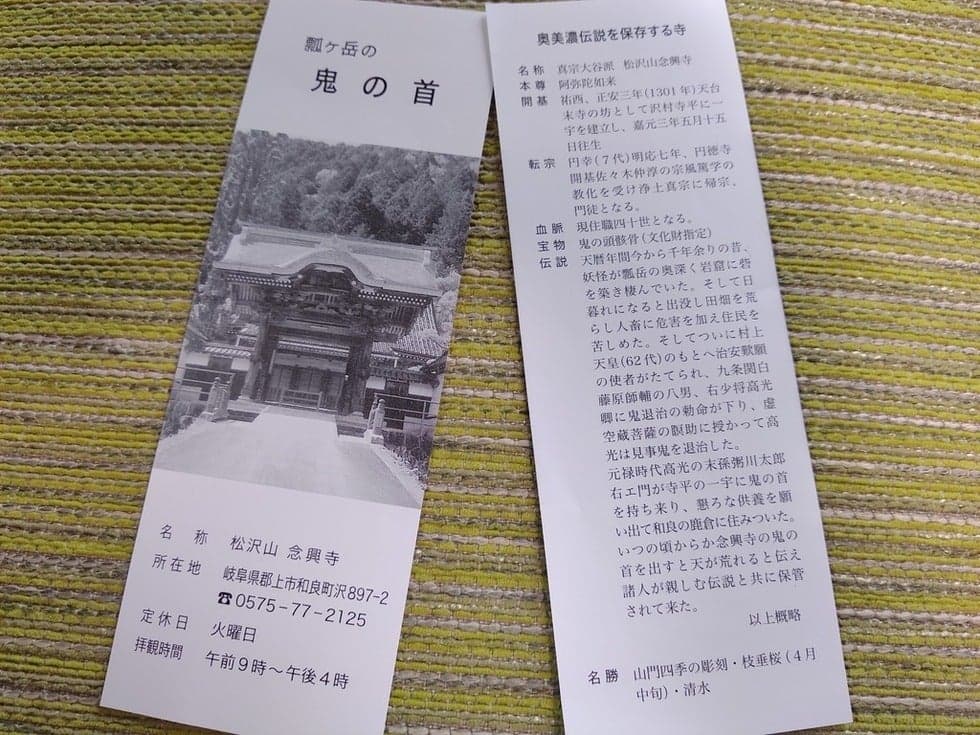 瓢ヶ岳の
鬼の首
名称 松沢山 念興寺
所在地 岐阜県郡上市和良町沢897-2
☎0575-77-2125
定休日 火曜日
拝観時間 午前9時〜午後4時
奥美濃伝説を保存する寺
名称 真宗大谷派 松沢山念興寺
本尊 阿弥陀如来
開基 祐西、正安三年(1301年)天台
末寺の坊として沢村寺平に一
宇を建立し、嘉元三年五月十五
日往生
転宗 円幸(7代)明応七年、円徳寺
開基佐々木仲淳の宗風篤学の
教化を受け浄土真宗に帰宗、
門徒となる。
血脈 現住職四十世となる。
宝物 鬼の頭骸骨(文化財指定)
伝説 天暦年間今から千年余りの昔、
妖怪が瓢岳の奥深く岩窟に砦
を築き棲んでいた。そして日
暮れになると出没し田畑を荒
らし人畜に危害を加え住民を
苦しめた。そしてついに村上
天皇(62代)のもとへ治安歎願
の使者がたてられ、九条関白
藤原師輔の八男、右少将高光
卿に鬼退治の勅命が下り、虚
空蔵菩薩の冥助に授かって高
光は見事鬼を退治した。
元禄時代高光の末孫粥川太郎
右エ門が寺平の一宇に鬼の首
を持ち来り、懇ろな供養を願
い出て和良の鹿倉に住みついた。
いつの頃からか念興寺の鬼の
首を出すと天が荒れると伝え
諸人が親しむ伝説と共に保管
されて来た。
以上概略
名勝 山門四季の彫刻・枝垂桜(4月
中旬)・清水